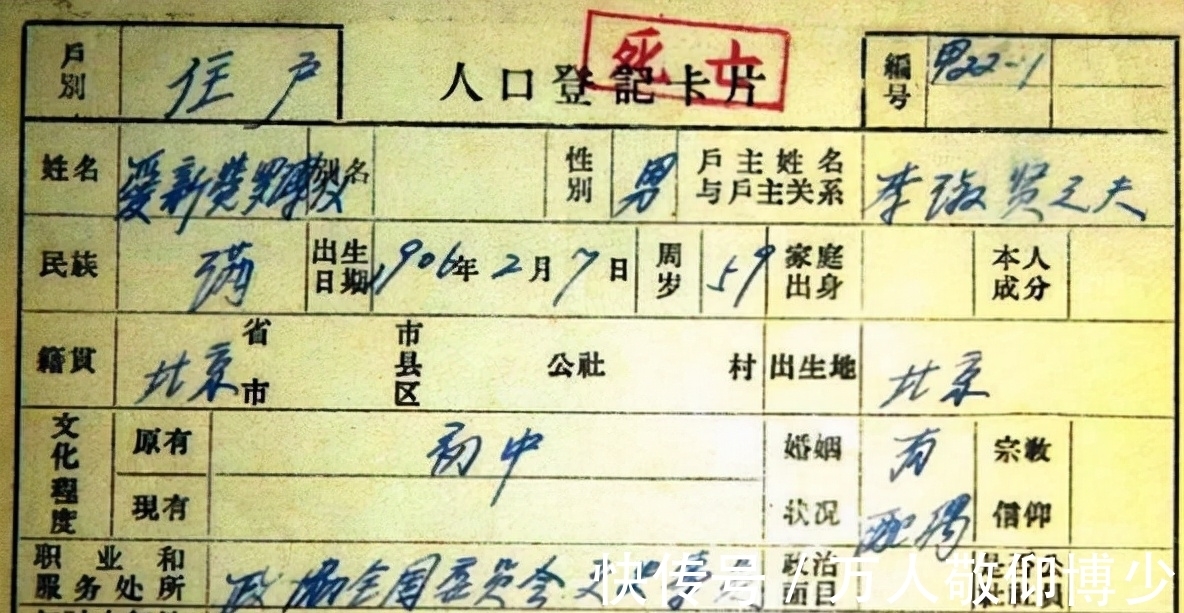 死亡
戶別 住户 人口登記卡片 編号 男22-1
姓名 爱新觉罗溥仪 别名 性別 男 戶主姓名与戶主关系 李淑贤之夫
民族 满 出生日期 1906年2月7日 周岁 59 家庭出身 本人成分
籍贯 北京 省市 市县区 公社 村 出生地 北京
文化程度 原有 初中 婚姻状况 有配偶 宗教信仰
現有
职业和服务处所 政协全国委员会 政治面目
快传号／万人敬仰博少